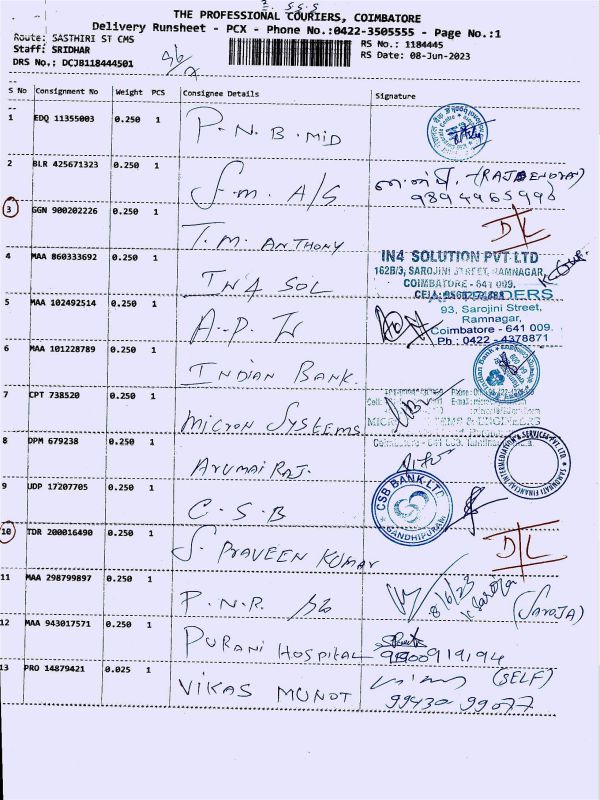 THE PROFESSIONAL COURIERS, COIMBATORE
Delivery Runsheet - PCX - Phone No.:0422-3505555 - Page No.:1
Route: SASTHIRI ST CMS
RS No.: 1184445
Staff: SRIDHAR
RS Date: 08-Jun-2023
DRS No.: DCJB118444501
S No Consignment No Weight PCS Consignee Details Signature
1 EDQ 11355003 0.250 1 P.N.B. MID
2 BLR 425671323 0.250 1 S.M. A/S (RAJBENDRAN)
9894965990
3 GGN 900202226 0.250 1 T.M. ANTHONY D/L
4 MAA 860333692 0.250 1 IN4 SOL
IN4 SOLUTION PVT LTD
162B/3, SAROJINI STREET, RAMNAGAR,
COIMBATORE - 641 009.
5 MAA 102492514 0.250 1 A.P.
93, Sarojini Street,
Ramnagar,
Coimbatore - 641 009.
Ph : 0422 - 4378871
6 MAA 101228789 0.250 1 INDIAN BANK
7 CPT 738520 0.250 1 MICRON SYSTEEMS
8 DPM 679238 0.250 1 ARUMAI RAJ.
9 UDP 17207705 0.250 1 C.S.B
CSB BANK-LTD
GANDHIPURAM
10 TDR 200016490 0.250 1 S. PRAVEEN KUMAR D/L
11 MAA 298799897 0.250 1 P.N.R. 8/6/23 K. Saroja (SAROJA)
12 MAA 943017571 0.250 1 PURANI HOSPITAL
13 PRO 14879421 0.025 1 VIKAS MUNOT (SELF)
99430 99077